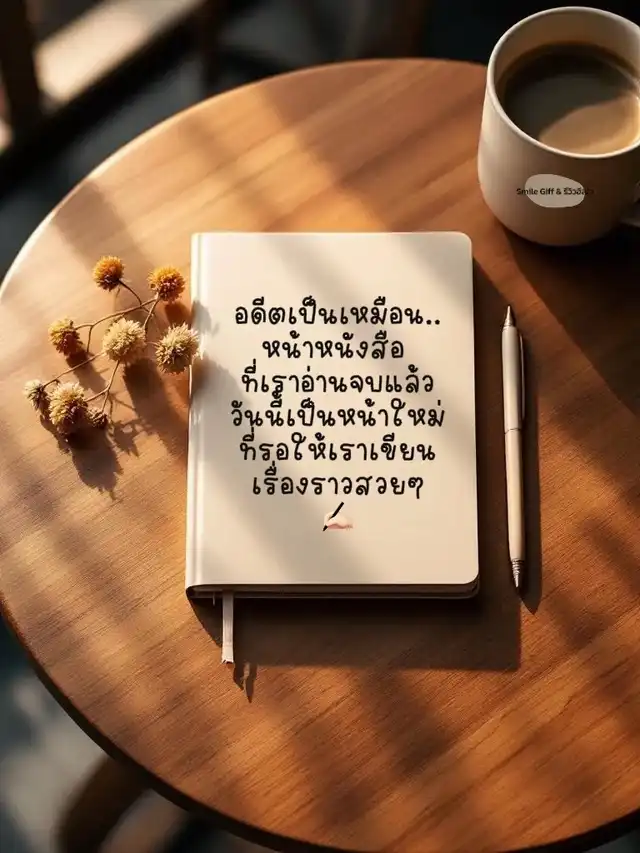 Smile Giff & รีวิวอีเปา
อดีตเป็นเหมือน..
หน้าหนังสือ
ที่เราอ่านจบแล้ว
วันนี้เป็นหน้าใหม่
ที่รอให้เราเขียน
เรื่องราวสวยๆ